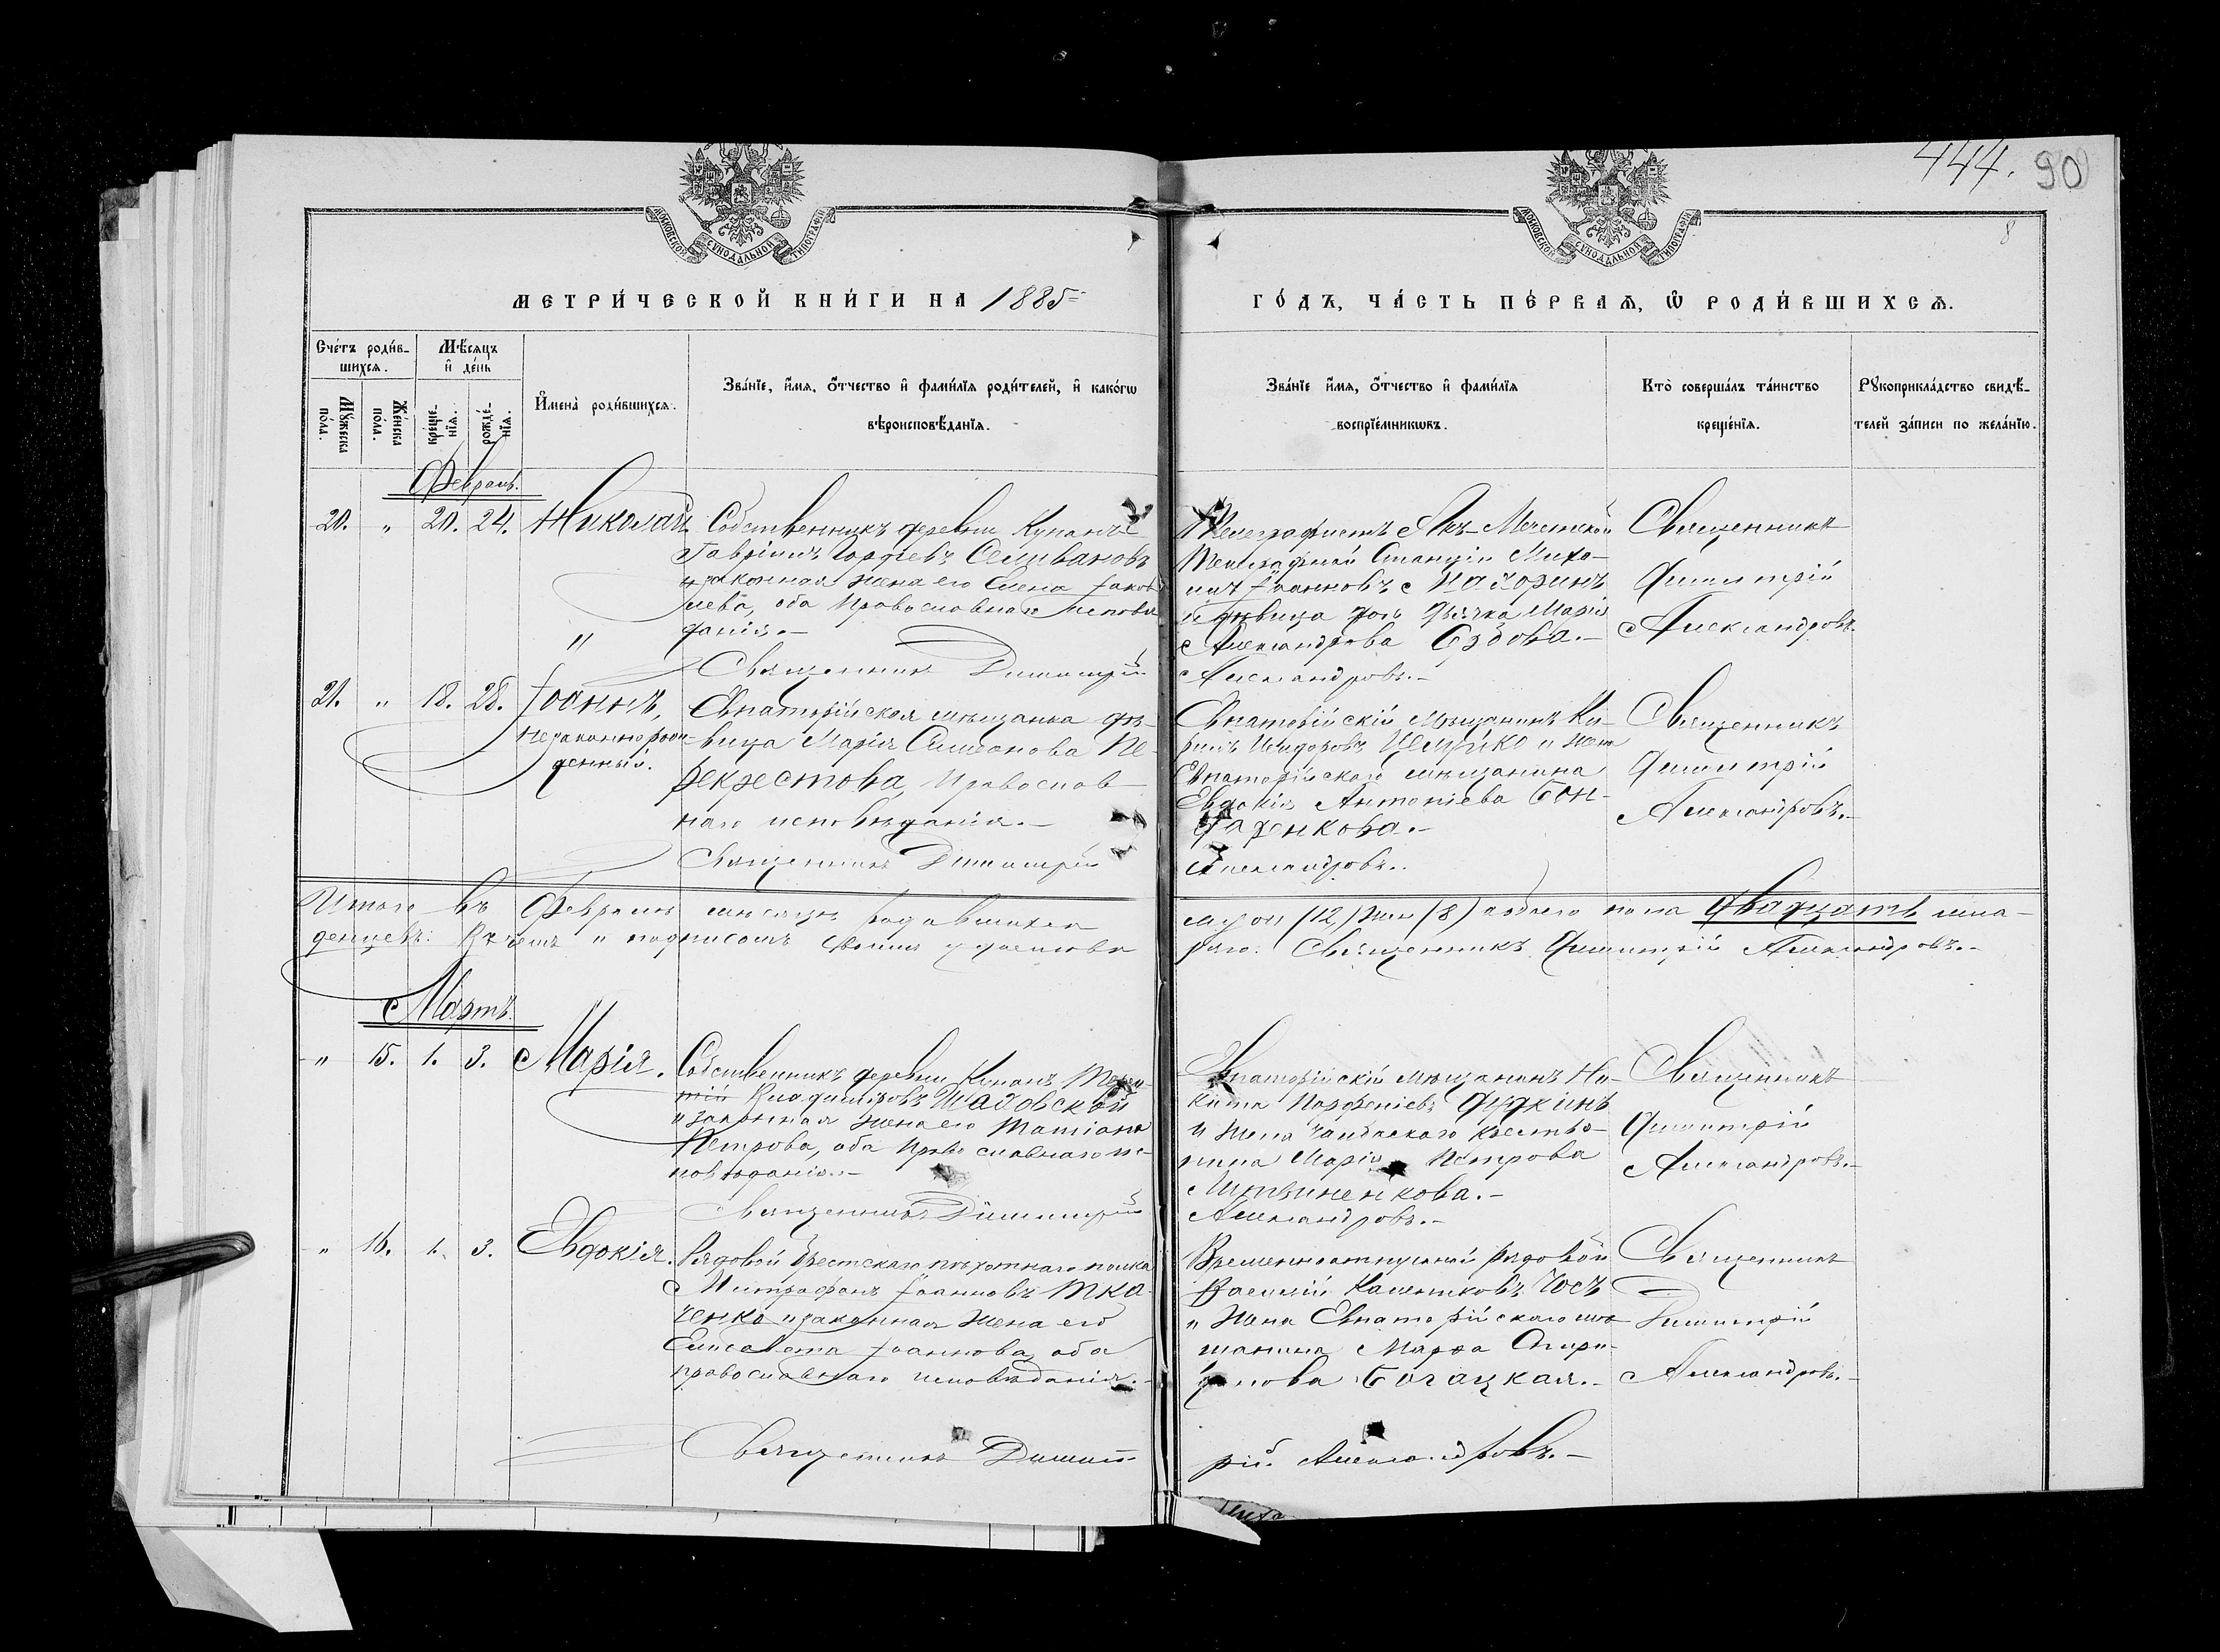 444. 90
8
МОСКОВСКОЙ СѴНОДАЛЬНОЙ ТИПОГРАФІИ
МОСКОВСКОЙ СѴНОДАЛЬНОЙ ТИПОГРАФІИ
МЕТРИ́ЧЕСКОЙ КНИ́ГИ НА 1885
ГО́ДЪ, ЧА́СТЬ ПЕ́РВАѦ, Ѡ҆ РОДИ́ВШИХСѦ.
Сче́тъ роди́в-
шихсѧ.
Мꙋ́жеска
по́ла.
Же́нска
по́ла.
Мѣ́сѧцъ
и҆ де́нь
креще́-
нїѧ.
рожде́-
нїѧ.
И҆мена̀ роди́вшихсѧ.
Зва́нїе, и҆́мѧ, ѻ҆́тчество и҆ фами́лїѧ роди́телей, и҆ како́гѡ
вѣроисповѣ́данїѧ.
Зва́нїе и҆́мѧ, ѻ҆́тчество и҆ фами́лїѧ
воспрїе́мникѡвъ.
Кто̀ соверша́лъ та́инство
креще́нїѧ.
Рꙋкоприкла́дство свидѣ́-
телей за́писи по жела́нїю.
Февраль.
20. " 20. 24. Николай
Собственникъ деревни Купанъ
Гавріилъ Селивановъ
и законная жена его Елена Яков
лева, оба Православнаго исповѣ
данія.-
"
Священникъ Димитрій
Телеграфистъ Акъ-Мечетской
Телеграфной Станціи Миха-
илъ Іоанновъ
и дѣвица дочь Дьячка Марія
Александрова.-
Александровъ.-
Священникъ
Димитрій
Александровъ.
21. " 18. 28. Іоаннъ,
незаконнорож-
денный.
Евпаторійская мѣщанка дѣ-
вица Марія Симеонова Пе-
рекрестова, Православ
наго исповѣданія.-
Священникъ Димитрій
Евпаторійскій мѣщанинъ Ки-
рилъ Исидоровъ и жена
Евпаторійскаго мѣщанина
Евдокія Антоніева Бон-
даренкова.-
Александровъ..
Священникъ
Димитрій
Александровъ.-
Итого въ Февралѣ мѣсяцѣ родившихся муж (12) жен (8) обоего пола двадцать мла-
денцевъ: въ чемъ и подписомъ своимъ удостовѣ ряю: Священникъ Димитрій Александровъ.-
Мартъ.
" 15. 1. 3. Марія.
Собственникъ деревни Купанъ
Владиміровъ Шадовской
и законная жена его Татіана
Петрова, оба Православнаго ис-
повѣданія.-
Священникъ Димитрій
Евпаторійскій мѣщанинъ Ни-
кита Парфеніевъ Дудкинъ
и жена крестья-
нина Марія Петрова
Литвиненкова.-
Александровъ.-
Священникъ
Димитрій
Александровъ.-
" 16. 1. 3. Евдокія.
Рядовой Брестскаго пѣхотнаго полка
Митрофанъ Іоанновъ Тка-
ченко и законная жена его
Елисавета Іоаннова, оба
православнаго исповѣданія.-
Священникъ Димит
Временноотпускной рядовой
Василій Чосъ
и жена Евпаторійскаго мѣ
щанина Марѳа Спири-
донова Богацкая.-
рій Александровъ.-
Священникъ
Димитрій
Александровъ.-